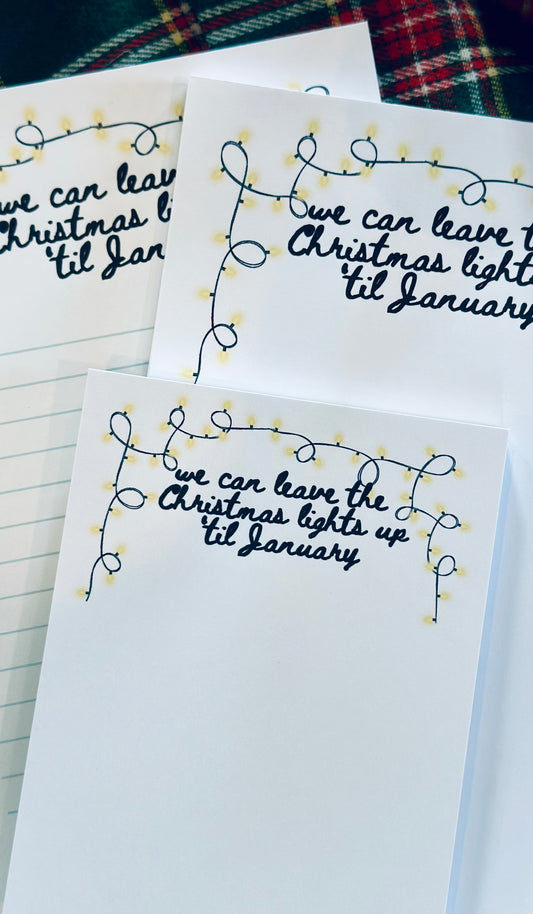 we can leav
Christmas li
'til Jan
we can leave t
Christmas lights
'til January
we can leave the
Christmas lights up
'til January